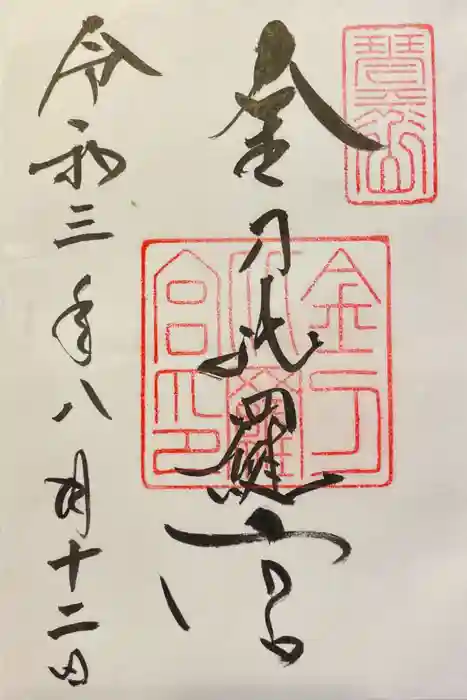 琴平山
金刀比羅宮
金刀比羅宮印
令和三年八月十二日